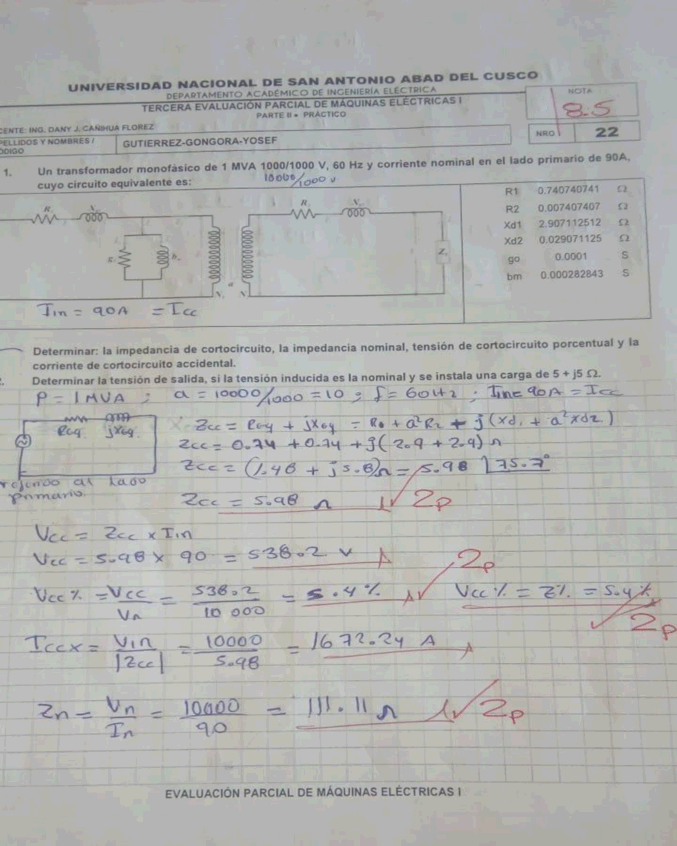 UNIVERSIDAD NACIONAL DE SAN ANTONIO ABAD DEL CUSCO
DEPARTAMENTO ACADÉMICO DE INGENIERÍA ELÉCTRICA
TERCERA EVALUACIÓN PARCIAL DE MÁQUINAS ELÉCTRICAS I
PARTE II • PRÁCTICO
NOTA
8.5
CENTE: ING. DANY J. CAÑIHUA FLOREZ
PELLIDOS Y NOMBRES /
ODIGO
GUTIERREZ-GONGORA-YOSEF
NRO.
22
1. Un transformador monofásico de 1 MVA 1000/1000 V, 60 Hz y corriente nominal en el lado primario de 90A,
cuyo circuito equivalente es:
10000/1000 V
R1 0.740740741 Ω
R2 0.007407407 Ω
Xd1 2.907112512 Ω
Xd2 0.029071125 Ω
go 0.0001 S
bm 0.000282843 S
I1n = 90A = Icc
Determinar: la impedancia de cortocircuito, la impedancia nominal, tensión de cortocircuito porcentual y la
corriente de cortocircuito accidental.
2. Determinar la tensión de salida, si la tensión inducida es la nominal y se instala una carga de 5 + j5 Ω.
P = 1 MVA ; a = 10000/1000 = 10 ; f = 60Hz ; I1n = 90A = Icc
Req jXeq
Zcc = Req + jXeq = R1 + a²R2 + j(Xd1 + a²Xd2)
Zcc = 0.74 + 0.74 + j(2.9 + 2.9) Ω
Zcc = (1.48 + j5.8)Ω = 5.98 ∠75.7°
al lado
primario.
Zcc = 5.98 Ω
2p
Vcc = Zcc x I1n
Vcc = 5.98 x 90 = 538.2 V
2p
Vcc % = Vcc/Vn = 538.2/10 000 = 5.4 %
Vcc % = Z% = 5.4 %
2p
Iccx = V1n/|Zcc| = 10000/5.98 = 1672.24 A
Zn = Vn/In = 10000/90 = 111.11 Ω
2p
EVALUACIÓN PARCIAL DE MÁQUINAS ELÉCTRICAS I